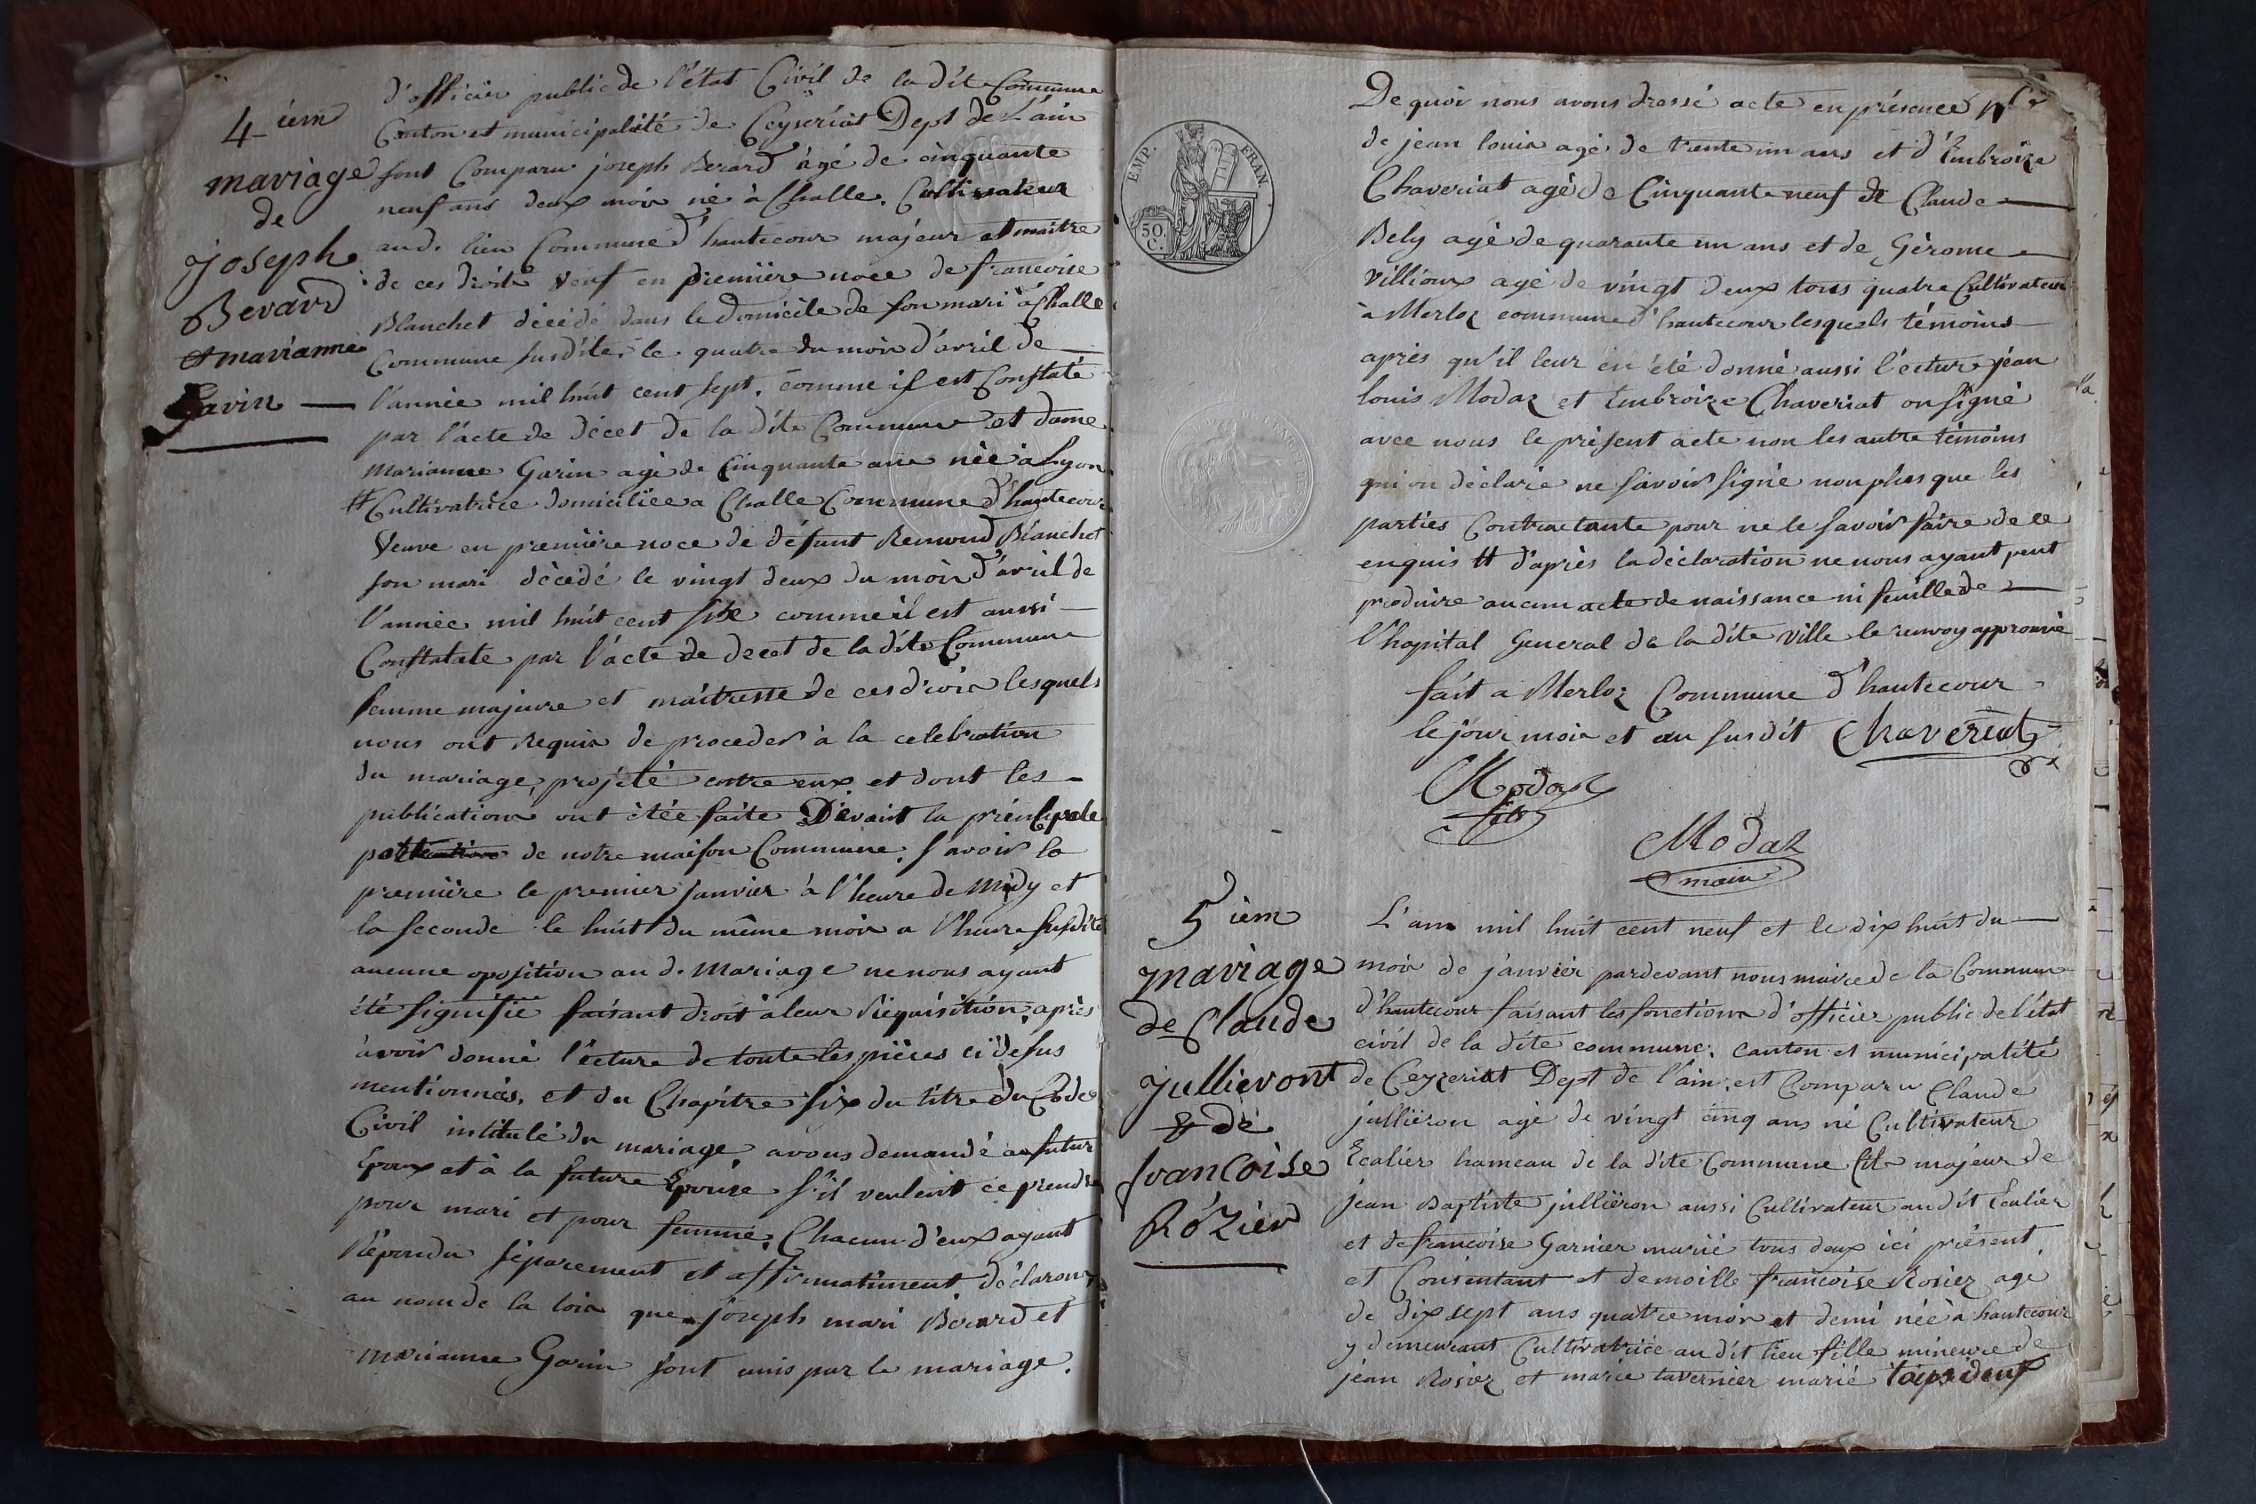 4 ièm
mariage
de
Joseph
Berard
et marianne
Garin
d'officier public de l'état Civil de la dite Commune
Canton et municipalité de Ceyseriat Dept de L'ain
sont Comparu joseph Berard âgé de cinquante
neuf ans deux mois né à Challe. Cultivateur
aud. lieu Commune d'hautecour majeur et maitre
de ces droits veuf en première noce de francoise
Blanchet décédé dans le domicile de son mari à Challe
Commune susdite, le quatre du mois d'avril de
l'année mil huit cent sept. comme il est Constaté
par l'acte de décet de la dite Commune et dame
Marianne Garin agé de Cinquante née à Lyon
# Cultivatrice domiciliée a Challe Commune d'hautecour
Veuve en première noce de défunt Remond Blanchet
son mari décédé le vingt deux du mois d'avril de
l'année mil huit cent six comme il est aussi
Constatée par l'acte de decet de la dite Commune
femme majeure et maitresse de ces droir lesquels
nous ont Requis de proceder à la celebration
du mariage, projété entre eux et dont les
publications ont étée faite Devant la principale
de notre maison Commune. savoir la
première le premier Janvier à l'heure de Midy et
la seconde le huit du même mois a l'heure susdite
aucunne oposition au d. Mariage ne nous ayant
été signifié faisant droit à leur Réquisition, après
avoir donné l'ecture de toute les pièces ci desus
mentionnées, et du Chapitre six du titre du Code
Civil intitulé du mariage avons demandé au futur
Epoux et à la future Epouse s'il veulent ce prendre
pour mari et pour femme, Chacun d'eux ayant
Répondu séparement et affirmatiment déclarons
au nom de la loix que joseph mari Berard et
marianne Garin sont unis par le mariage.
EMP. FRAN.
50. C.
De quoi nous avons dressé acte en présence
de jean louis agé de trente un ans et d'Embroize
Chaveriat agé de Cinquante neuf de Claude
Bely agé de quarante un ans et de Gérome
Villioux agé de vingt deux tous quatre Cultivateur
à Merloz commune d'hautecour lesquels témoins
après qu'il leur en été donné aussi l'ecture jean
louis Modaz et Embroize Chaveriat on signé
avec nous le présent acte non les autre témoins
qui on déclaré ne savoir signé non plus que les
parties Contractante pour ne le savoir faire de ce
enquis # d'après la déclaration ne nous ayant peut
produire aucun acte de naissance ni feuille de
l'hopital General de la dite ville le renvoy approuvé
fait a Merloz Commune d'hautecour
le jour moi et an susdit Chaveriat
Modaz
fils
Modaz
maire
5 ièm
mariage
de Claude
Jullieront
& de
francoise
Rózier
L'an mil huit cent neuf et le dix huit du
mois de janvier pardevant nous maire de la Commune
d'hautecour faisant les fonctions d'officier public de l'état
civil de la dite commune. canton et municipalité
de Ceyzeriat Dept de l'ain. est Comparu Claude
jullièron agé de vingt cinq ans né Cultivateur
Ecalier hameau de la dite Commune fils majeur de
jean Baptiste jullièron aussi Cultivateur au dit Ecalier
et de francoise Garnier marié tous deux ici présent
et Consentant et demoille francoise Rosier age
de dix sept ans quatre mois et demi née à hautecour
y demeurant Cultivatrice au dit lieu fille mineure de
jean Rosier et marie tavernier marié